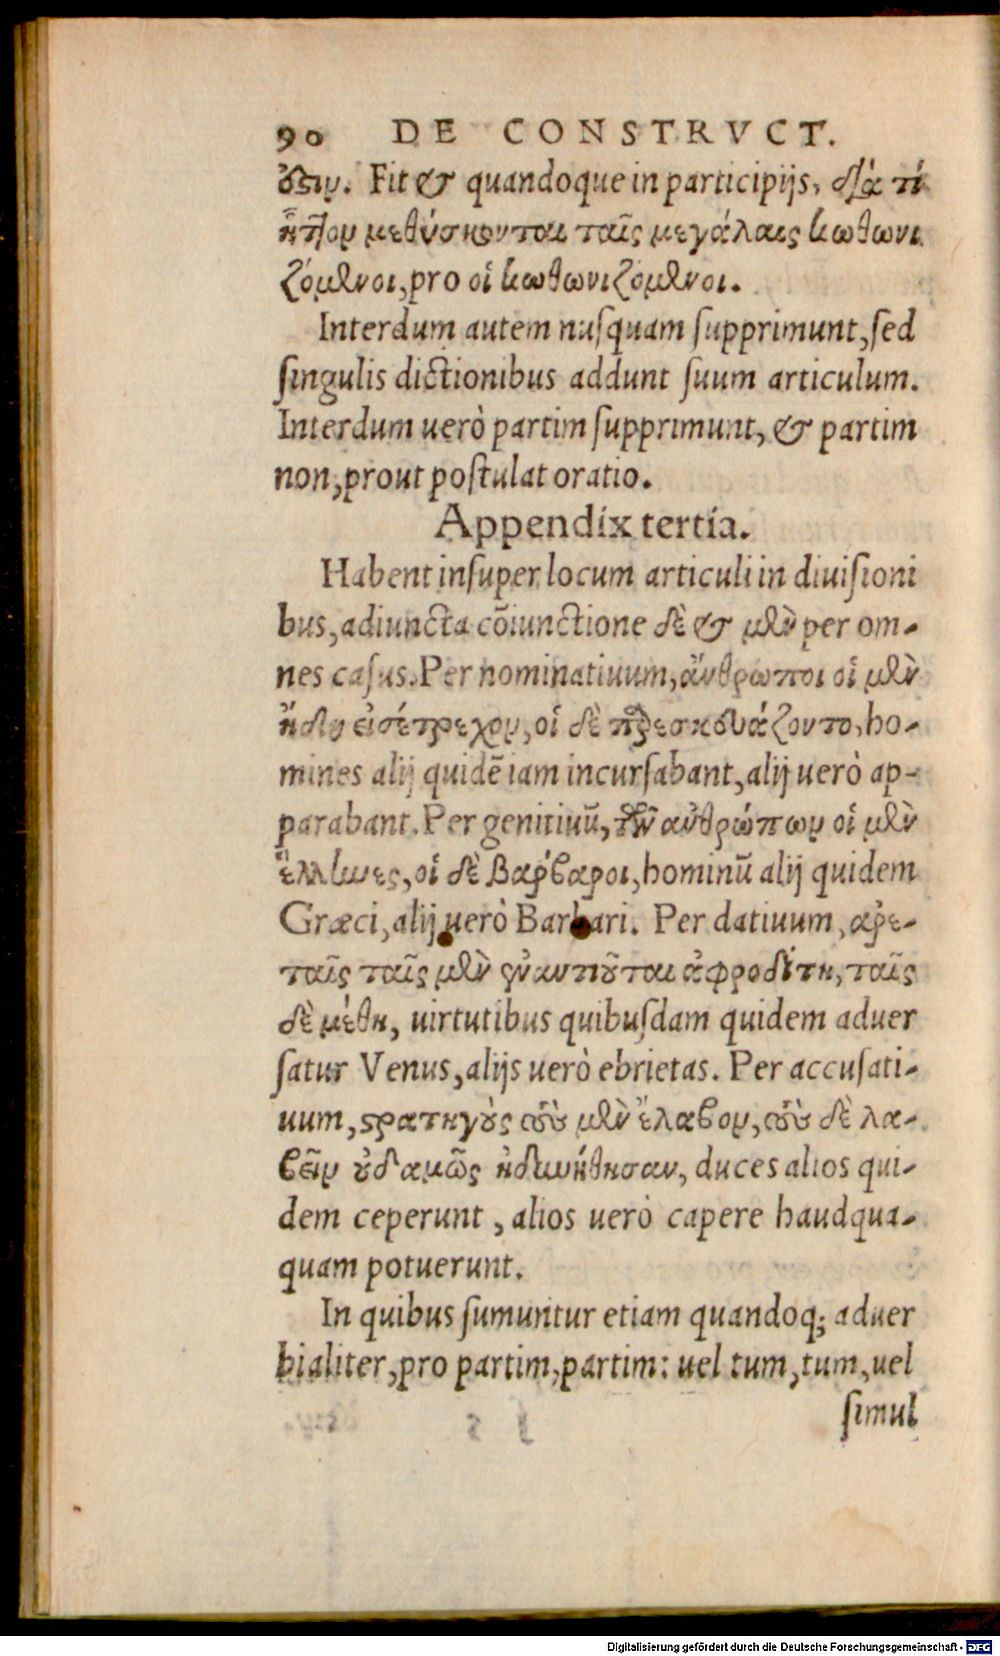 90 DE CONSTRVCT.
ὅτιν. Fit & quandoque in participijs, διὰ τί
ἧττον μεθύσκονται ταῖς μεγάλαις κωθωνι
ζόμενοι, pro οἱ κωθωνιζόμενοι.
Interdum autem nusquam supprimunt, sed
singulis dictionibus addunt suum articulum.
Interdum uerò partim supprimunt, & partim
non, prout postulat oratio.
Appendix tertia.
Habent insuper locum articuli in diuisioni
bus, adiuncta cõiunctione δὲ & μὲν per om-
nes casus. Per nominatiuum, ἄνθρωποι οἱ μὲν
ἤδη εἰσέτρεχον, οἱ δὲ παρεσκευάζοντο, ho-
mines alij quidẽ iam incursabant, alij uerò ap-
parabant. Per genitiuũ, τῶν ἀνθρώπων οἱ μὲν
ἕλληνες, οἱ δὲ βάρβαροι, hominũ alij quidem
Græci, alij uerò Barbari. Per datiuum, ἀρε-
ταῖς ταῖς μὲν ἐναντιοῦται ἀφροδίτη, ταῖς
δὲ μέθη, uirtutibus quibusdam quidem aduer
satur Venus, alijs uerò ebrietas. Per accusati-
uum, στρατηγοὺς τοὺς μὲν ἔλαβον, τοὺς δὲ λα-
βεῖν οὐδαμῶς ἠδυνήθησαν, duces alios qui-
dem ceperunt, alios uerò capere haudqua-
quam potuerunt.
In quibus sumuntur etiam quandoq; aduer
bialiter, pro partim, partim: uel tum, tum, uel
simul
Digitalisierung gefördert durch die Deutsche Forschungsgemeinschaft - DFG